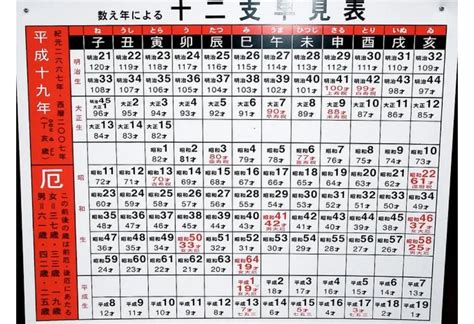 数え年による 十二支早見表
ね うし とら う たつ み うま ひつじ さる とり いぬ ゐ
子 丑 寅 卯 辰 巳 午 未 申 酉 戌 亥
平成十九年
(丁亥歳)
紀元二六六七年・西暦二〇〇七年
厄
この前後の歳は前厄・後厄にあたる
女=三七歳・三三歳・一九歳
男=六一歳・四二歳・二五歳
明治生
大正生
昭和生
平成生
明治21 明治22 明治23 明治24 明治25 明治26 明治27 明治28 明治29 明治30 明治31 明治32
120才 119才 118才 117才 116才 115才 114才 113才 112才 111才 110才 109才
明治33 明治34 明治35 明治36 明治37 明治38 明治39 明治40 明治41 明治42 明治43 明治44
108才 107才 106才 105才 104才 103才 102才 101才 100才 99才 98才 97才
明治45 大正1 大正2 大正3 大正4 大正5 大正6 大正7 大正8 大正9 大正10 大正11 大正12
96才 95才 94才 93才 92才 91才 90才 89才 88才 87才 86才 85才
大正13 大正14 大正15
84才 83才 82才
昭和2 昭和3 昭和4 昭和5 昭和6 昭和7 昭和8 昭和9 昭和10
81才 80才 79才 78才 77才 76才 75才 74才 73才
昭和11 昭和12 昭和13 昭和14 昭和15 昭和16 昭和17 昭和18 昭和19 昭和20 昭和21 昭和22
72才 71才 70才 69才 68才 67才 66才 65才 64才 63才 62才 61才
昭和23 昭和24 昭和25 昭和26 昭和27 昭和28 昭和29 昭和30 昭和31 昭和32 昭和33 昭和34
60才 59才 58才 57才 56才 55才 54才 53才 52才 51才 50才 49才
昭和35 昭和36 昭和37 昭和38 昭和39 昭和40 昭和41 昭和42 昭和43 昭和44 昭和45 昭和46
48才 47才 46才 45才 44才 43才 42才 41才 40才 39才 38才 37才
昭和47 昭和48 昭和49 昭和50 昭和51 昭和52 昭和53 昭和54 昭和55 昭和56 昭和57 昭和58
36才 35才 34才 33才 32才 31才 30才 29才 28才 27才 26才 25才
昭和59 昭和60 昭和61 昭和62 昭和63 昭和64
24才 23才 22才 21才 20才 19才
平成1 平成2 平成3 平成4 平成5 平成6 平成7
19才 18才 17才 16才 15才 14才 13才
平成8 平成9 平成10 平成11 平成12 平成13 平成14 平成15 平成16 平成17 平成18 平成19
12才 11才 10才 9才 8才 7才 6才 5才 4才 3才 2才 1才